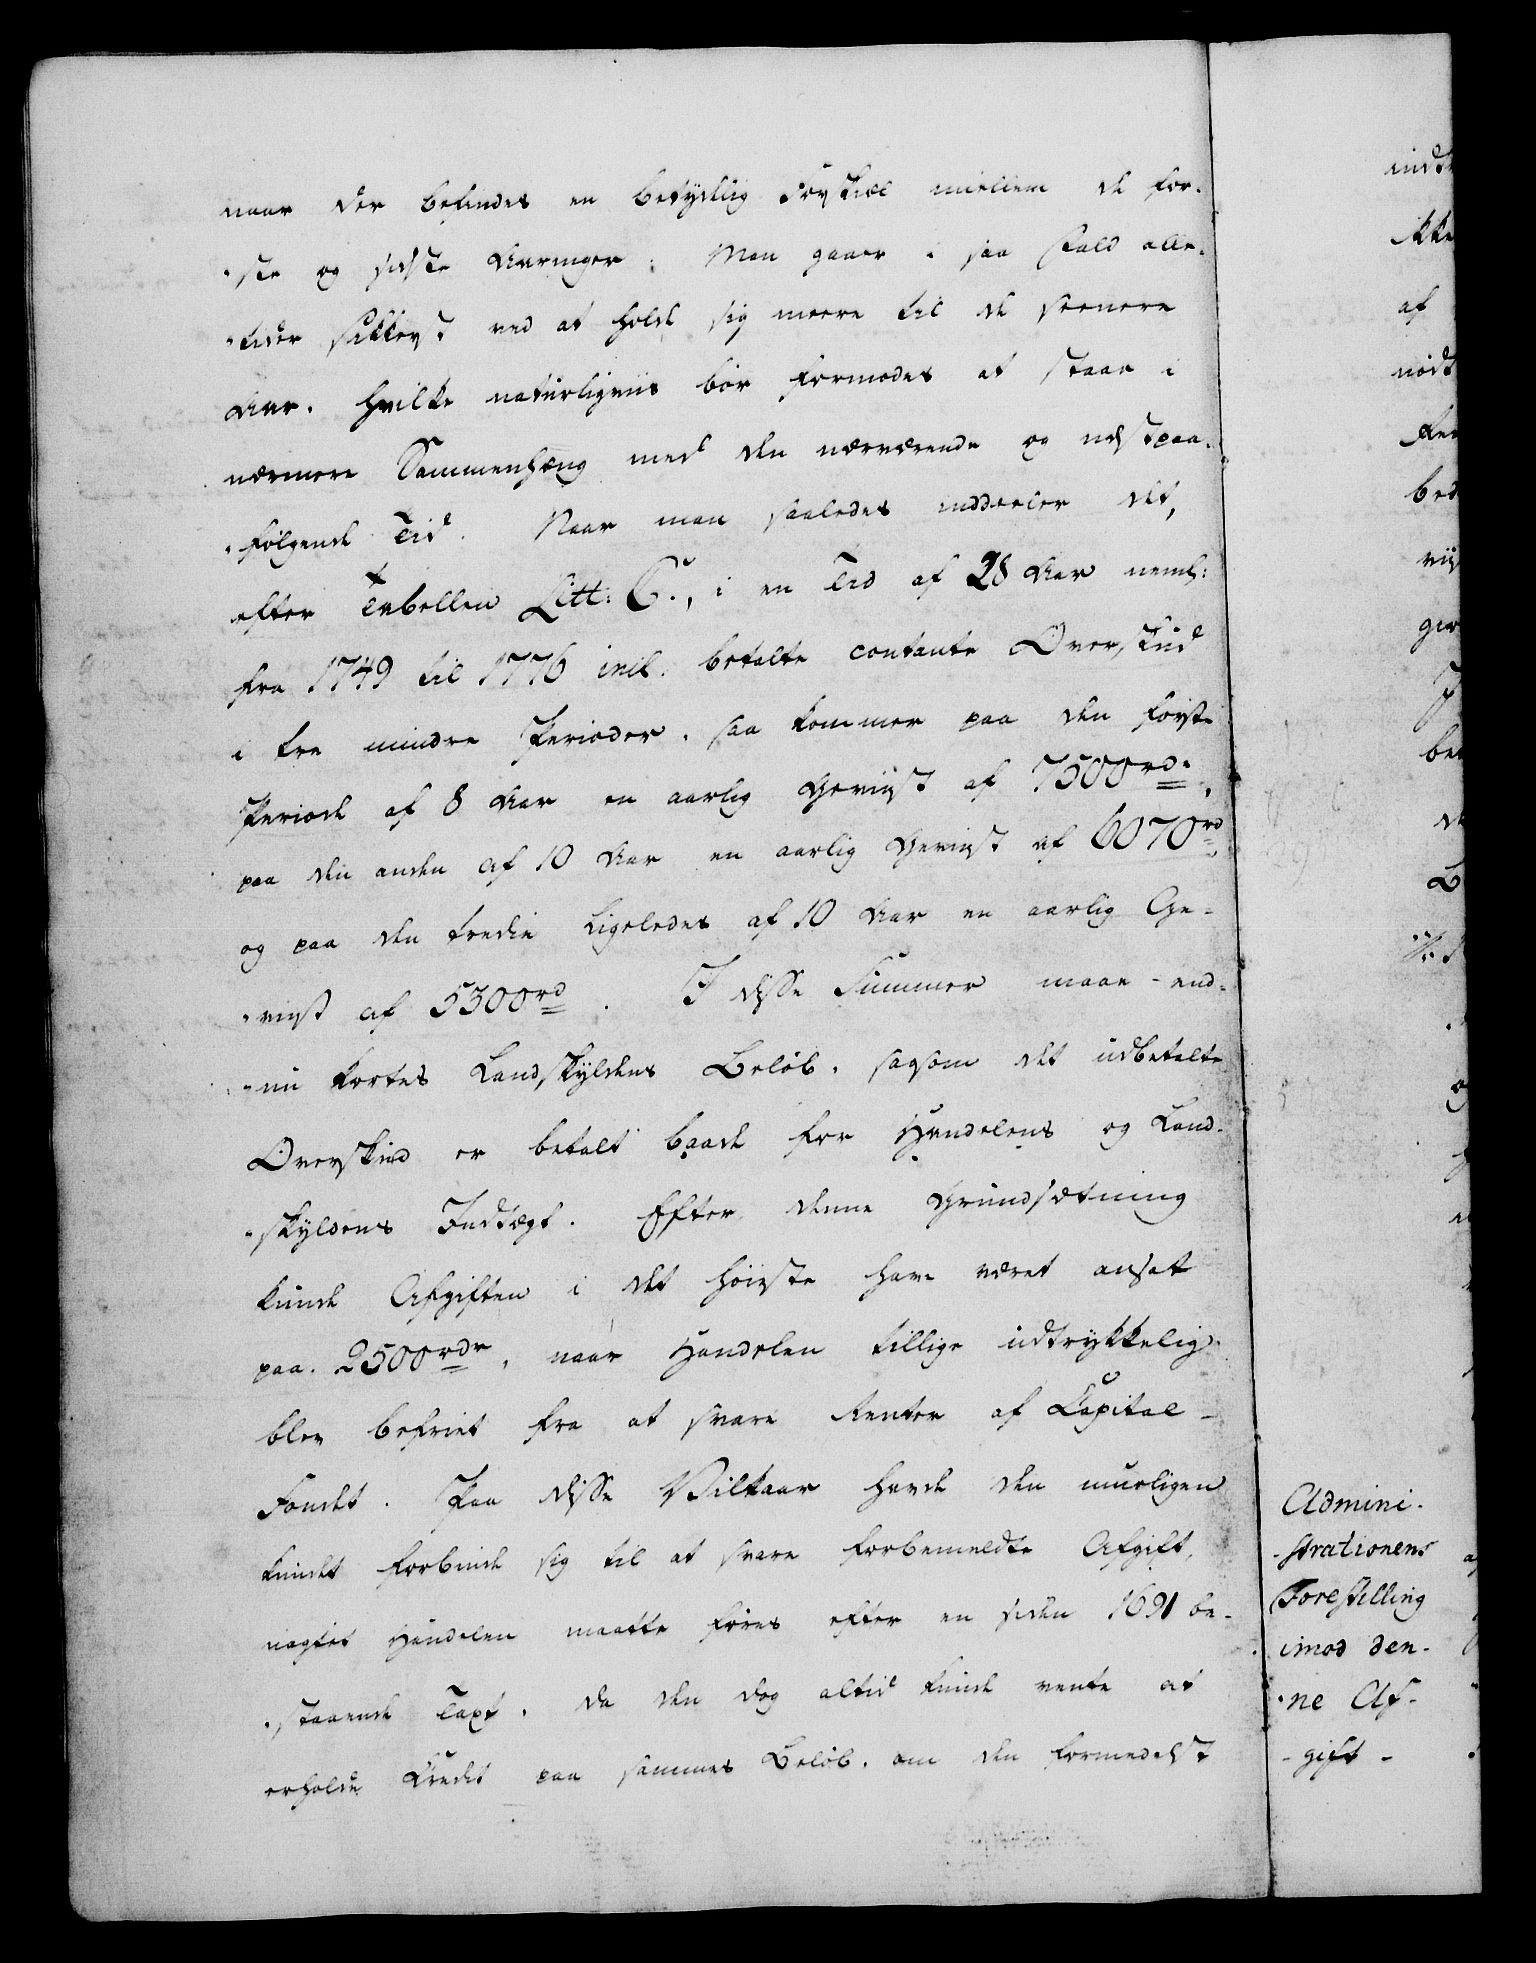 naar der befindes en betydelig Forskiæl mellem de før-
-ste og sidste Aaringer. Man gaaer i saa Fald alle-
-tider sikkerst ved at holde sig meere til de seenere
Aar, hvilke naturligviis bør formodes at staae i
nærmere Sammenhæng med den nærværende og nestpaa-
-følgende Tid. Naar man saaledes inddeeler det,
efter Tabellen Litt: C., i en Tid af 28 Aar neml:
fra 1749 til 1776 incl. betalte contante Overskud
i tre mindre Perioder, saa kommer paa den første
Periode af 8 Aar en aarlig Gevinst af 7500rd.,
paa den anden af 10 Aar en aarlig Gevinst af 6070rd,
og paa den tredie ligeledes af 10 Aar en aarlig Ge-
-vinst af 5300rd. I disse Summer maae end-
-nu kortes Landskyldens Beløb, saasom det udbetalte
Overskud er betalt baade for Handelens og Land-
-skyldens Indtægt. Efter denne Grundsætning
kunde Afgiften i det høieste have været ansat
paa 2500rdr, naar Handelen tillige udtrykkelig
blev befriet fra at svare Renter af Capital-
Fondet. Paa disse Vilkaar havde den mueligen
kundet forbinde sig til at svare forbemeldte Afgift,
uagtet Handelen maatte føres efter en siden 1691 be-
-staaende Taxt, da den dog altid kunde vente at
erholde Credit paa sammes Beløb, om den formedelst
Admini-
-strationens
Forestilling
imod den-
-ne Af-
-gift-